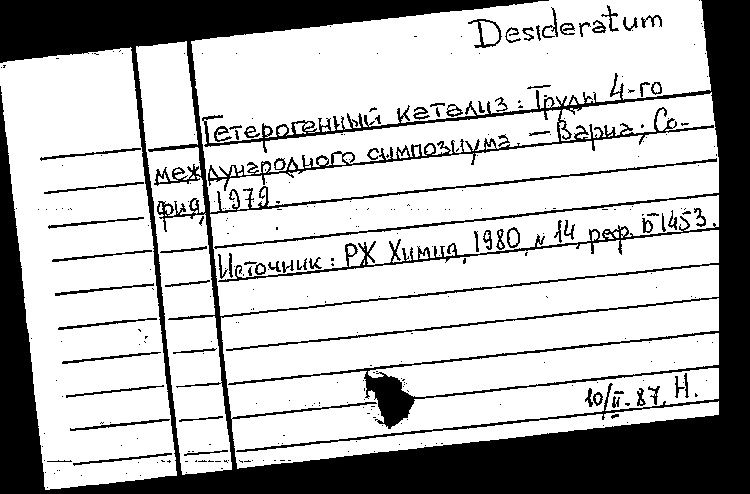 Desideratum
Гетерогенный катализ: Труды 4-го
международного симпозиума. – Варна; Со-
фия, 1979.
Источник: РЖ Химия, 1980, № 14, реф. Б1453.
10/II-87. Н.